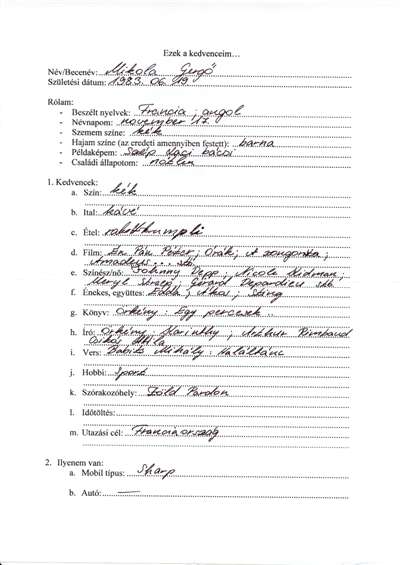 Ezek a kedvenceim…
Név/Becenév: Mikola Gergő
Születési dátum: 1983. 06. 19
Rólam:
- Beszélt nyelvek: Francia, angol
- Névnapom: november 17
- Szemem színe: kék
- Hajam színe (az eredeti amennyiben festett): barna
- Példaképem: Szép Vagi bácsi
- Családi állapotom: nőtlen
1. Kedvencek:
a. Szín: kék
b. Ital: kávé
c. Étel: rakottkrumpli
d. Film: Én, Pán Péter; Órák; A zongorista;
Amadeus, ... stb.
e. Színész/nő: Johnny Depp, Nicole Kidman,
Meryl Streep, Gérard Depardieu stb.
f. Énekes, együttes: Edda, Ákos, Sting
g. Könyv: Örkény: Egy percesek..
h. Író: Örkény, Karinthy, Arthur Rimbaud
Csikós Attila
i. Vers: Babits Mihály: Haláltánc
j. Hobbi: Sport
k. Szórakozóhely: Zöld Pardon
l. Időtöltés:
m. Utazási cél: Franciaország
2. Ilyenem van:
a. Mobil típus: Sharp
b. Autó: —